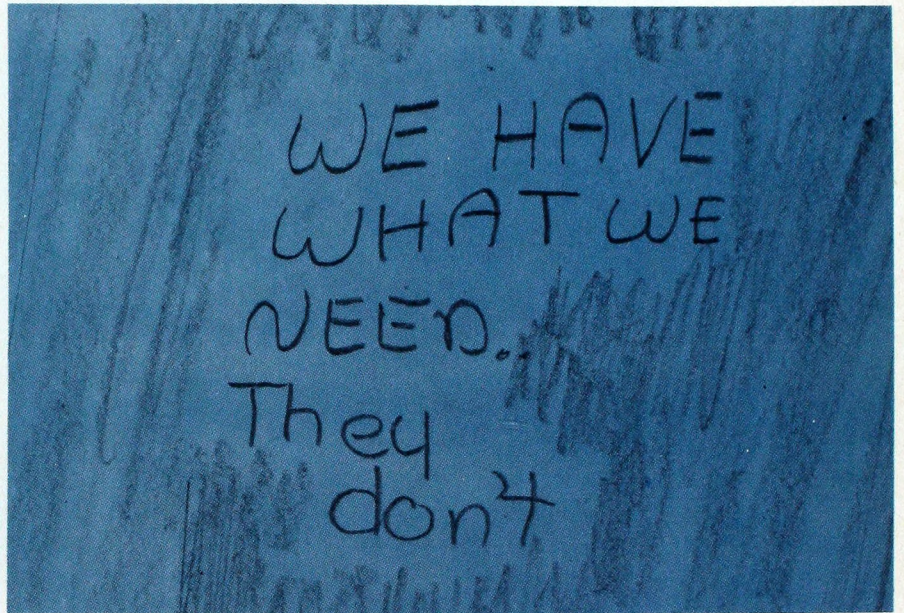 WE HAVE
WHAT WE
NEED..
They
don't